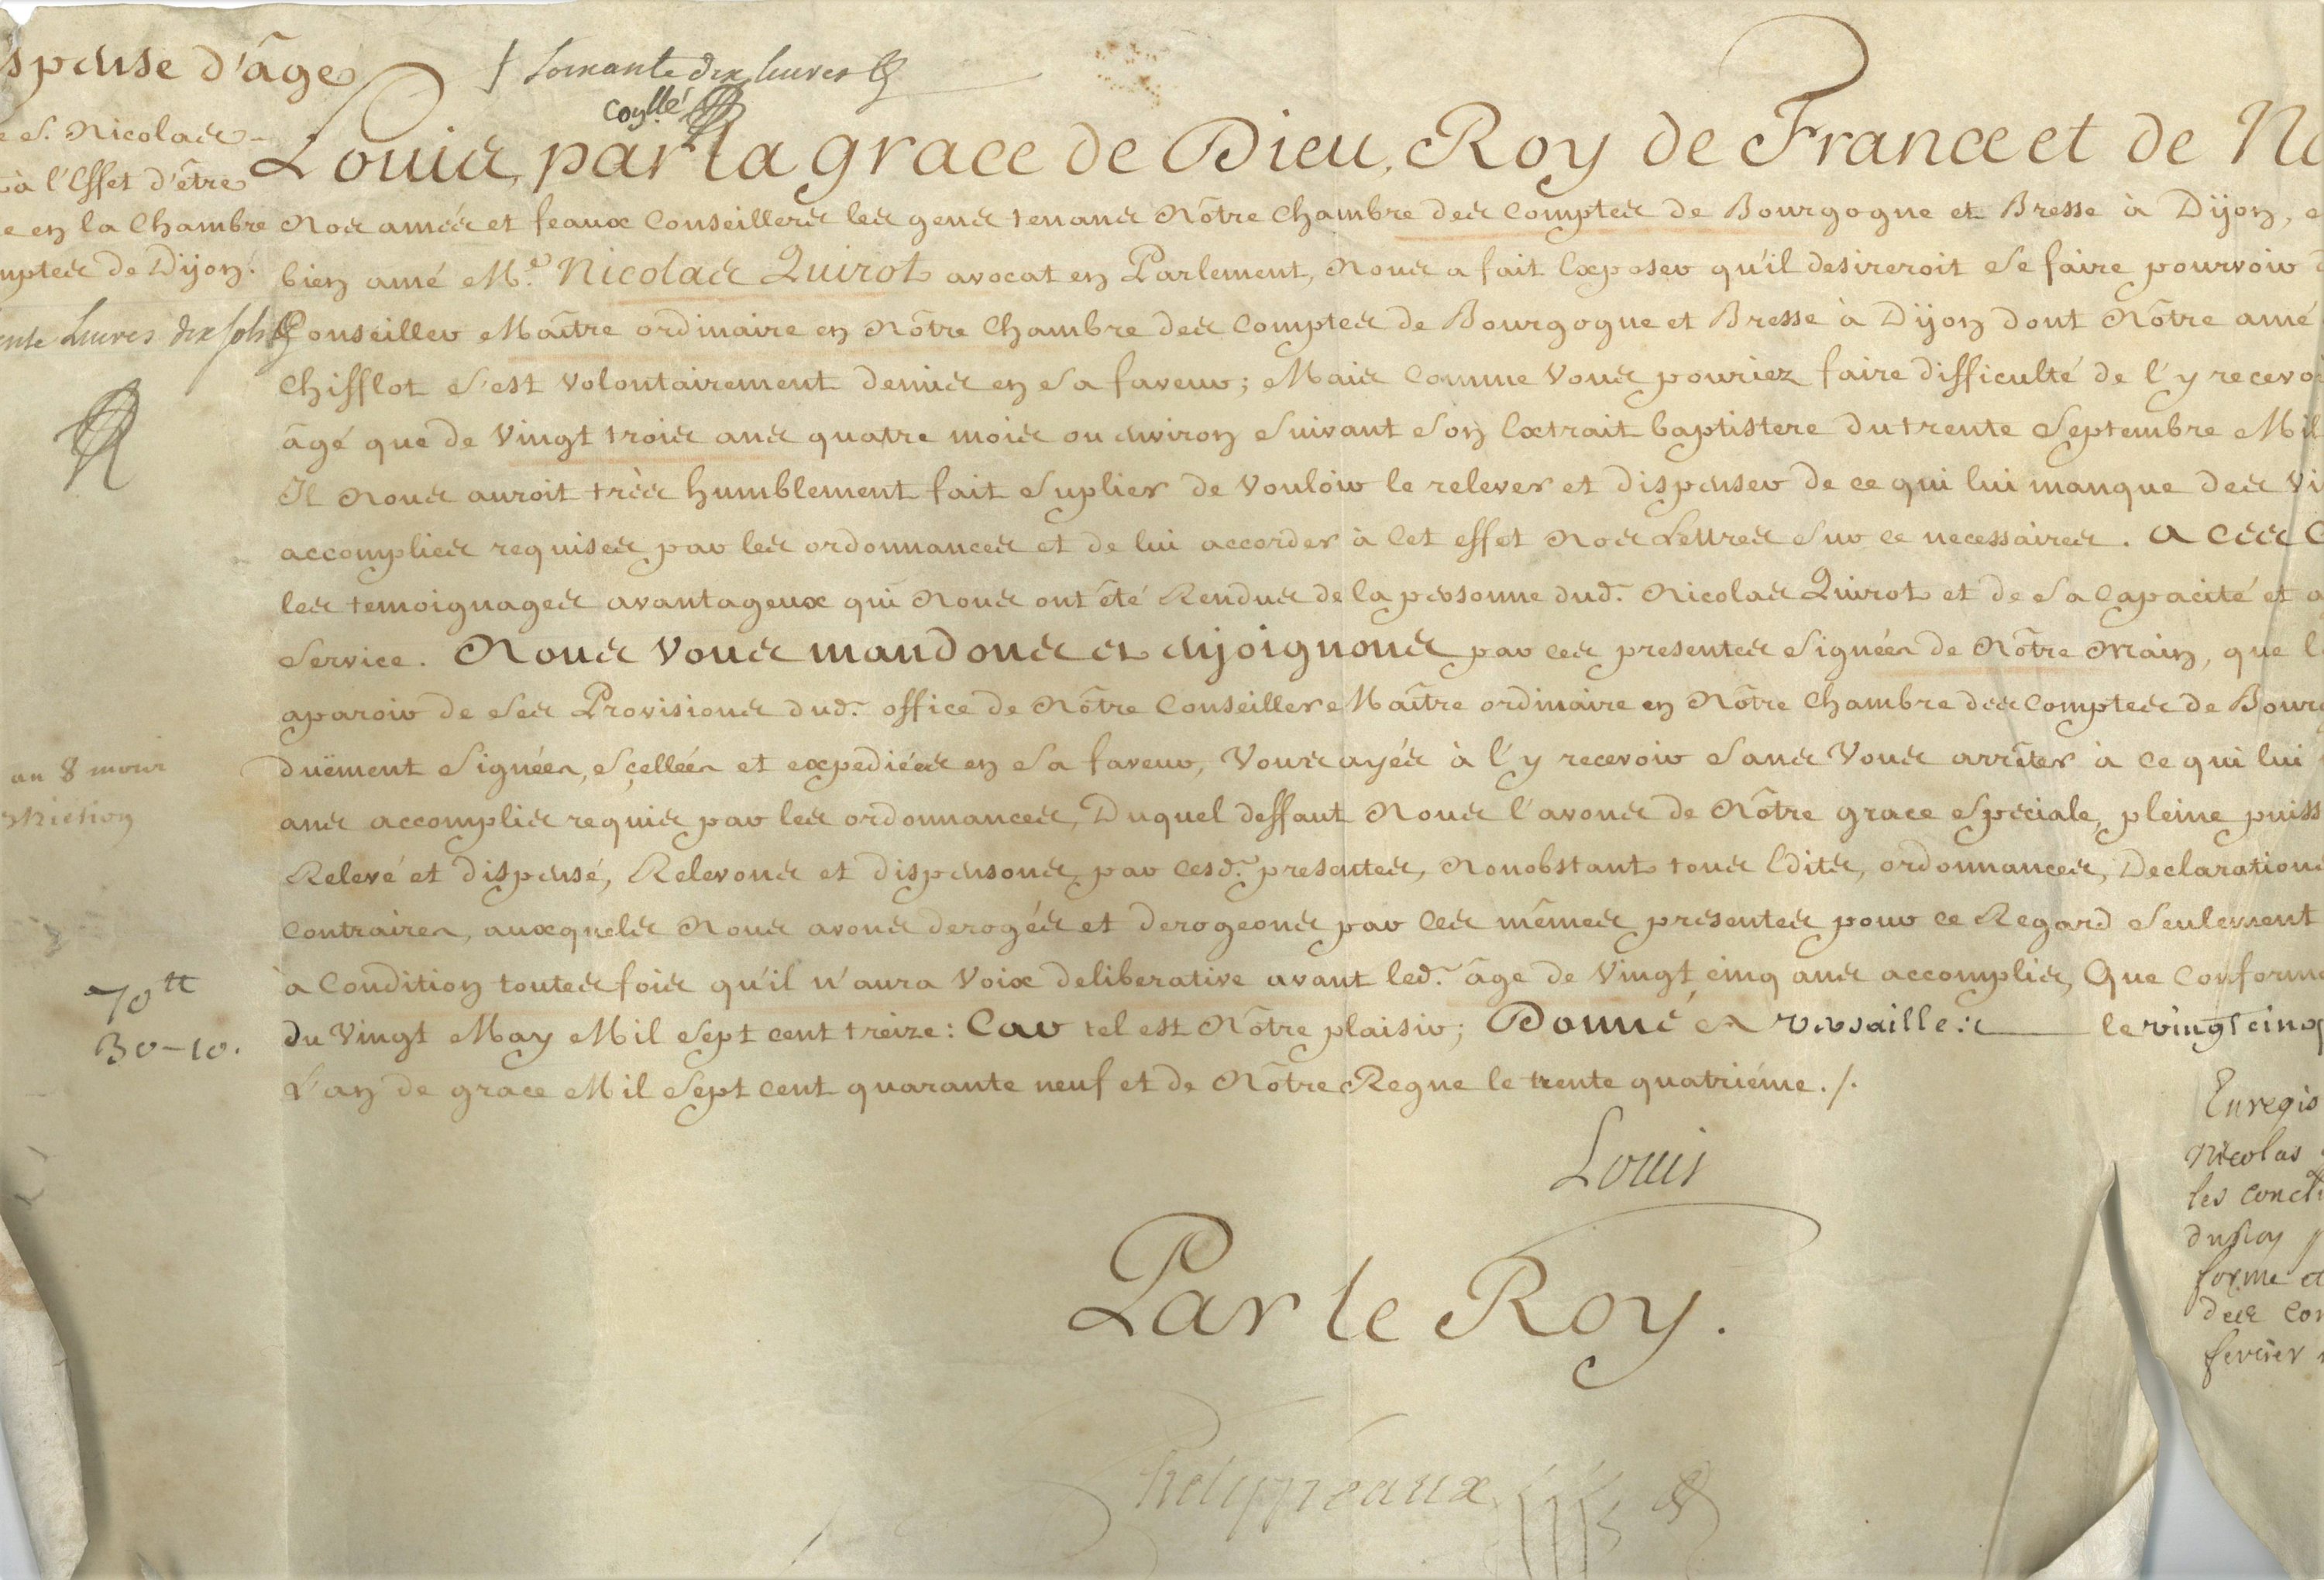 spense d'âge
soixante dix livres
coyllé
S. Nicolas
à l'Effet d'être
en la Chambre
mptes de Dijon.
ente Livres dix sols
Louis, par la grace de Dieu, Roy de France et de
Nos amés et feaux Conseillers les gens tenans Nôtre Chambre des Comptes de Bourgogne et Bresse à Dijon,
bien amé Me. Nicolas Quirot avocat en Parlement, Nous a fait Exposer qu'il desireroit se faire pourvoir
Conseiller Maître ordinaire en Nôtre Chambre des Comptes de Bourgogne et Bresse à Dijon dont Nôtre amé
Chifflot s'est volontairement demis en sa faveur; Mais comme Vous pouriez faire difficulté de l'y recevoi
âgé que de Vingt trois ans quatre mois ou environ suivant son Extrait baptistere du trente Septembre Mil
Il Nous auroit très humblement fait suplier de vouloir le relever et dispenser de ce qui lui manque des Vi
accomplies requises par les ordonnances et de lui accorder à cet effet Nos Lettres sur ce necessaires. A Ces C
les temoignages avantageux qui Nous ont été Rendus de la personne dud. Nicolas Quirot et de sa Capacité et a
Service. Nous Vous mandons et enjoignons par ces presentes signées de Nôtre Main, que
aparoir de ses Provisions dud. office de Nôtre Conseiller Maître ordinaire en Nôtre Chambre des Comptes de Bourg
duëment signées, sçellées et expediées en sa faveur, Vous ayés à l'y recevoir sans Vous arrêter à ce qui lui
ans accomplis requis par les ordonnances, Duquel deffaut Nous l'avons de Nôtre grace speciale, pleine puiss
Relevé et dispensé, Relevons et dispensons par cesd. presentes, Nonobstant tous Edits, ordonnances, Declarations
contraires, auxquels Nous avons derogés et derogeons par ces mêmes presentes pour ce Regard seulement
à Condition toutes fois qu'il n'aura Voix deliberative avant led. âge de Vingt cinq ans accomplis, Que Conforme
du Vingt May Mil Sept cent treize: Car tel est Nôtre plaisir; Donné à Versailles le vingt cinq
L'an de grace Mil Sept cent quarante neuf et de Nôtre Regne le trente quatriéme ./.
an 8 mois
70 tt
30-10.
Louis
Par le Roy.
Phelyppeaux
Enregis
Nicolas
les concl
du Roy
forme et
des com
fevrier